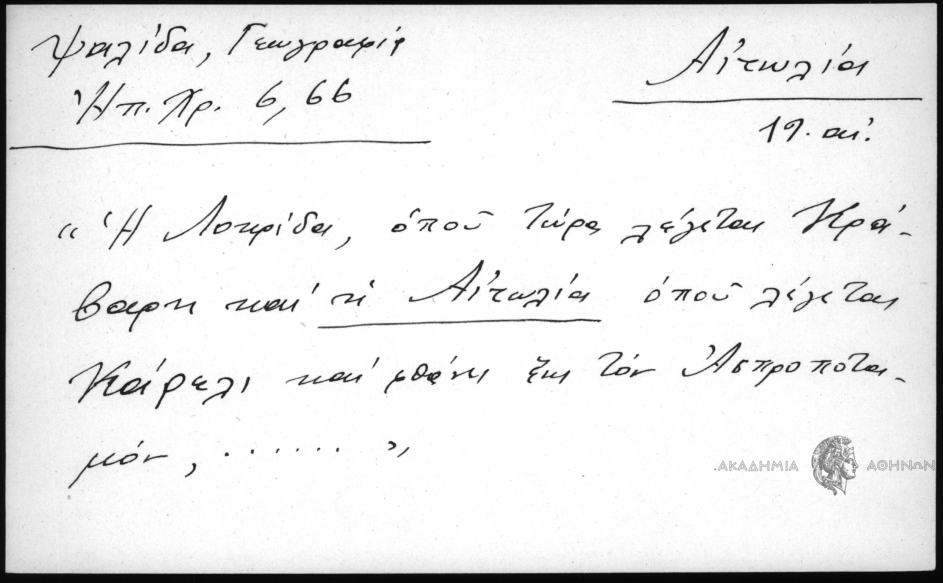 Ψαλίδα, Γεωγραφία
Ἠπ. Χρ. 6, 66
Αἰτωλία
19. αἰ.
« Ἡ Λοκρίδα, ὁποῦ τώρα λέγεται Κρά-
βαρη καί ἡ Αἰτωλία ὁποῦ λέγεται
Κάρελι καί φθάνει ἕως τόν Ἀσπροπότα-
μόν, ....... »
ΑΚΑΔΗΜΙΑ ΑΘΗΝΩΝ